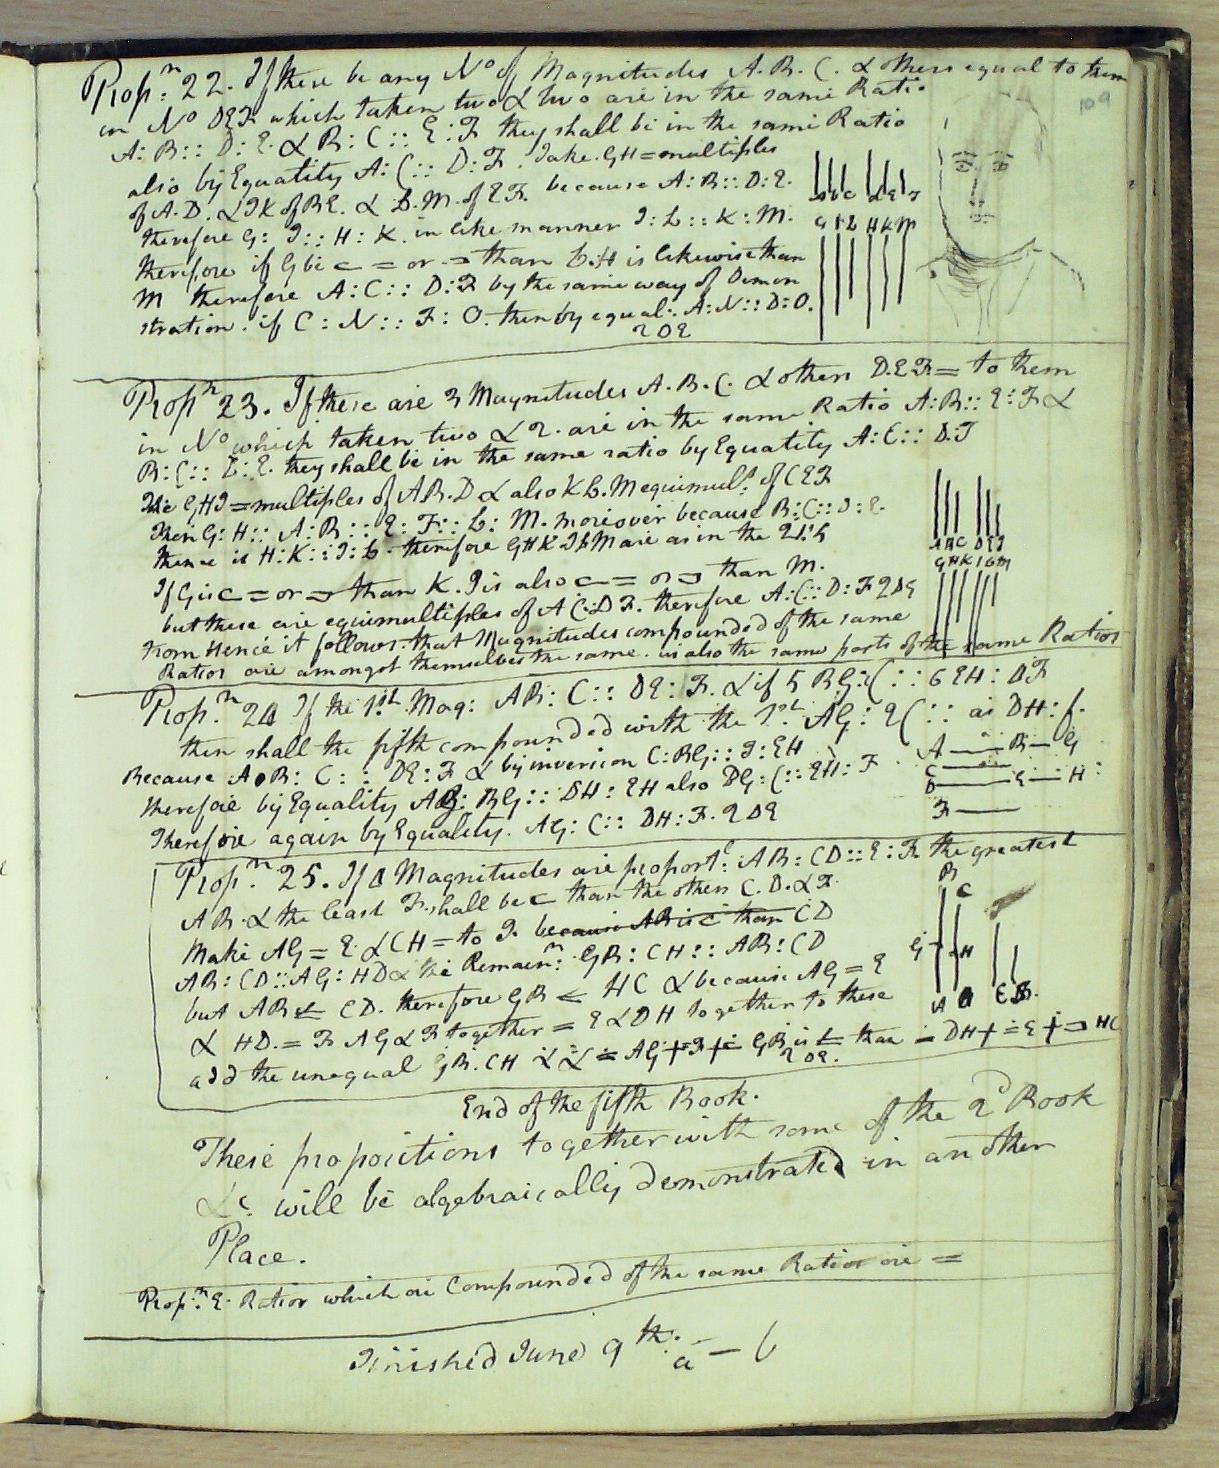 109
Propn. 22. If there be any No of Magnitudes A. B. C. & others equal to them
in No DEF which taken two & two are in the same Ratio
A: B:: D: E. & B: C:: E: F they shall be in the same Ratio
also by Equality A: C:: D: F. Take GH = multiples
of A. D. & IK of BE. & L. M. of CF. because A: B:: D: E.
therefore G: I:: H: K. in like manner I: L:: K: M.
therefore if G be ⊏ = or ⊐ than L. H is likewise than
M therefore A: C:: D: F by the same way of Demon
stration. if C: N:: F: O. then by equal: A: N:: D: O.
QDE
ABC DEF
GIL HKM
Propn 23. If there are 3 Magnitudes A. B. C. & others D. E. F = to them
in No which taken two & 2. are in the same Ratio A: B:: E: F &
B: C:: D: E. they shall be in the same ratio by Equality A: C:: D: F
Take GHI = multiples of AB. D & also K L. M equimul. of CEF
Then G: H:: A: B:: E: F:: L: M. moreover because B: C:: D: E.
thence is H: K:: I: L. therefore GHK ILM are as in the 21: 5
If G is ⊏ = or ⊐ than K. I is also ⊏ = or ⊐ than M.
but these are equimultiples of A C: D F. therefore A: C:: D: F QDE
From Hence it follows. that Magnitudes compounded of the same
Ratios are amongst themselves the same. as also the same parts of the same Ratios
ABC DEF
GHK ILM
Propn. 24 If the 1st. Mag: AB: C:: DE: F. & if 5 BG: C:: 6 EH: F
then shall the fifth compounded with the 1st AG: 2 C:: as DH: f.
Because AB: C:: DE: F & by inversion C: BG:: F: EH
Therefore by Equality AB: BG:: DH: EH also BG: C:: EH: F
Therefore again by Equality. AG: C:: DH: F. QDE
A B G
C
D E H
F
Propn. 25. If 4 Magnitudes are proport: AB: CD:: E: F the greatest
AB. & the least F. shall be ⊏ than the others C. D. & E.
Make AG = E. & CH = to F. because AB is ⊏ than CD
AB: CD:: AG: HD & the Remain: GB: CH:: AB: CD
but AB ⊏ CD. therefore GB ⊏ HC & because AG = E
& HD. = F AG & F together = E & DH together to these
add the unequal GB. CH AG + F + GB is ⊏ than = DH + E + ⊐ HC
QDE.
B C
G H
A D E F.
End of the fifth Book.
These propositions together with some of the 2d Book
&c. will be algebraically demonstrated in another
Place.
Propn. E. Ratios which are Compounded of the same Ratios are =
Finished June 9th. a — 6